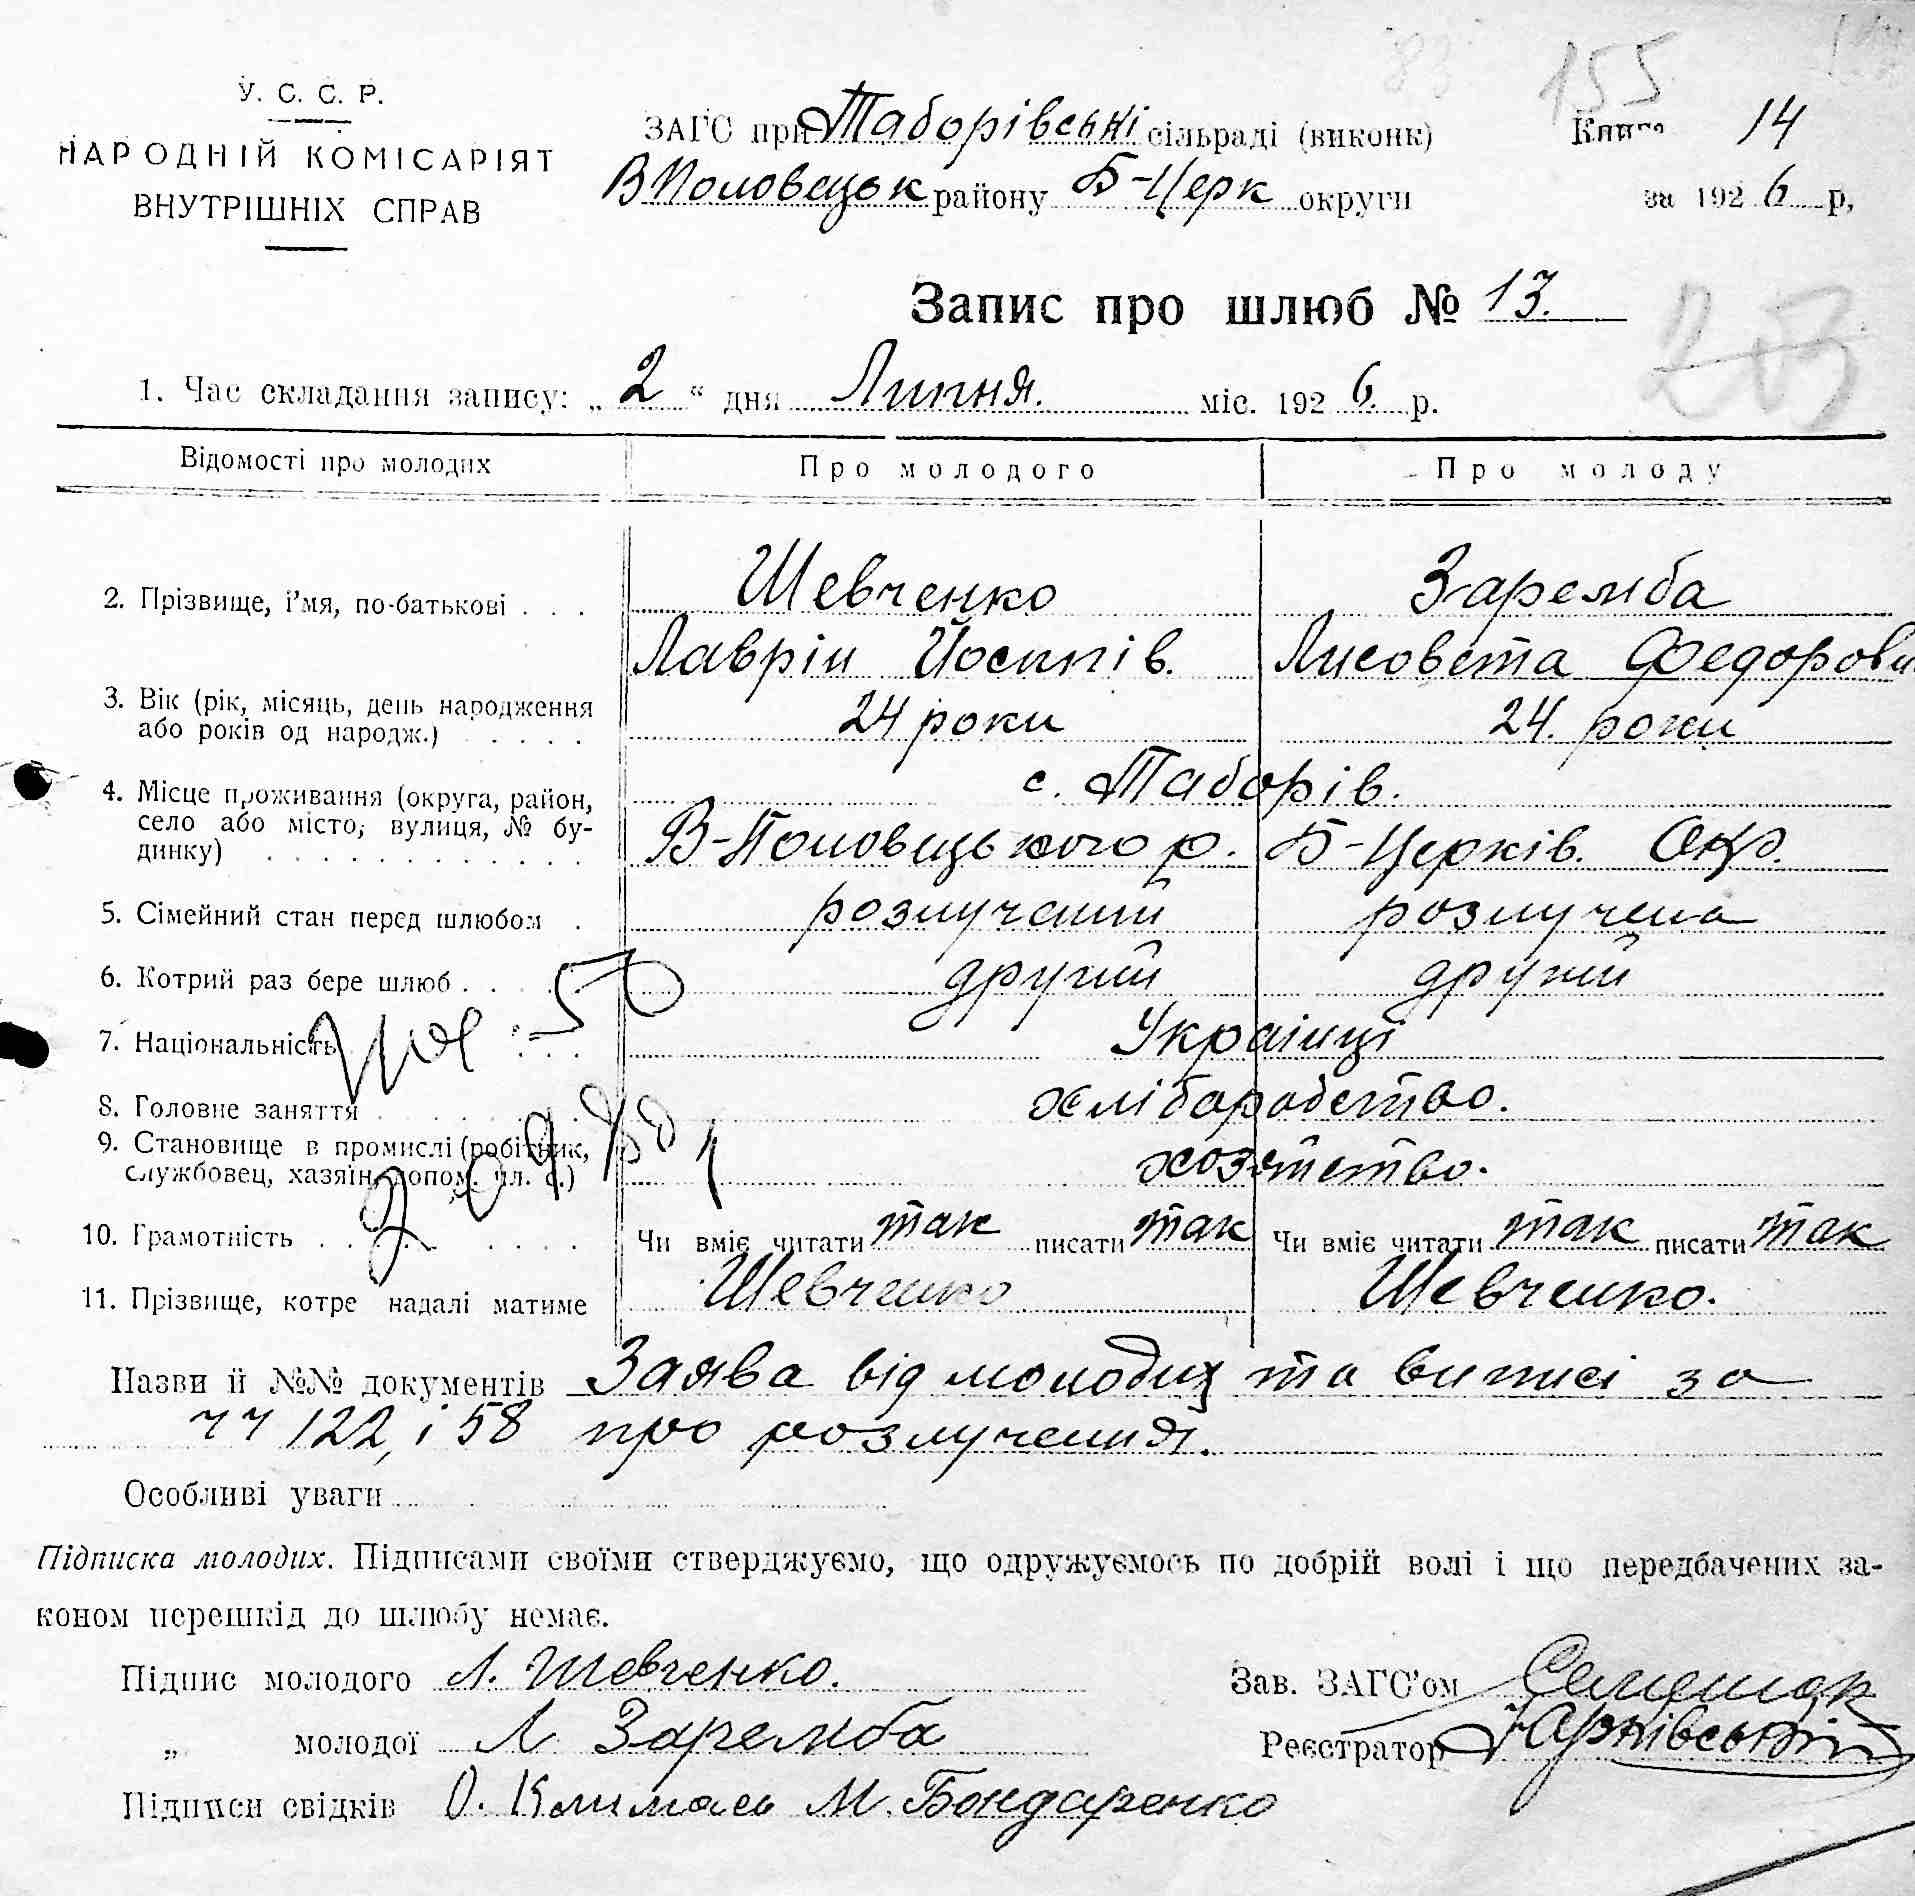 155
У. С. С. Р.
НАРОДНІЙ КОМІСАРІЯТ
ВНУТРІШНІХ СПРАВ
ЗАГС при Таборівські сільраді (виконк)
Книга 14
ВПоловецьк району Б-Церк округи
за 1926 р,
Запис про шлюб № 13.
203
1. Час складання запису: „2“ дня Липня. міс. 1926. р.
Відомості про молодих Про молодого Про молоду
2. Прізвище, і'мя, по-батькові . . . Шевченко Заремба
Лаврін Йосипів. Лисовета Федорови
3. Вік (рік, місяць, день народження
або років од народж.) . . . . . 24 роки 24. роки
4. Місце проживання (округа, район, с. Таборів.
село або місто, вулиця, № бу-
динку) . . . . . . . . . . . . В-Половецького р. Б-Церків. Окр.
5. Сімейний стан перед шлюбом . розлучений розлучена
6. Котрий раз бере шлюб . . . . другий другий
7. Національність . . . Українці
8. Головне заняття . . . . . . хліборобство.
9. Становище в промислі (робітник,
службовец, хазяїн, допом. чл. с.) хозяйство.
10. Грамотність . . . . . . . . Чи вміє читати так писати так Чи вміє читати так писати так
11. Прізвище, котре надалі матиме Шевченко Шевченко.
Назви й №№ документів Заява від молодих та виписі за
чч 122, і 58 про розлучення.
Особливі уваги
Підписка молодих. Підписами своїми стверджуємо, що одружуємось по добрій волі і що передбачених за-
коном перешкід до шлюбу немає.
Підпис молодого Л. Шевченко.
Зав. ЗАГС'ом
„ молодої Л Заремба
Реєстратор
Підписи свідків О. Климась М. Бондаренко